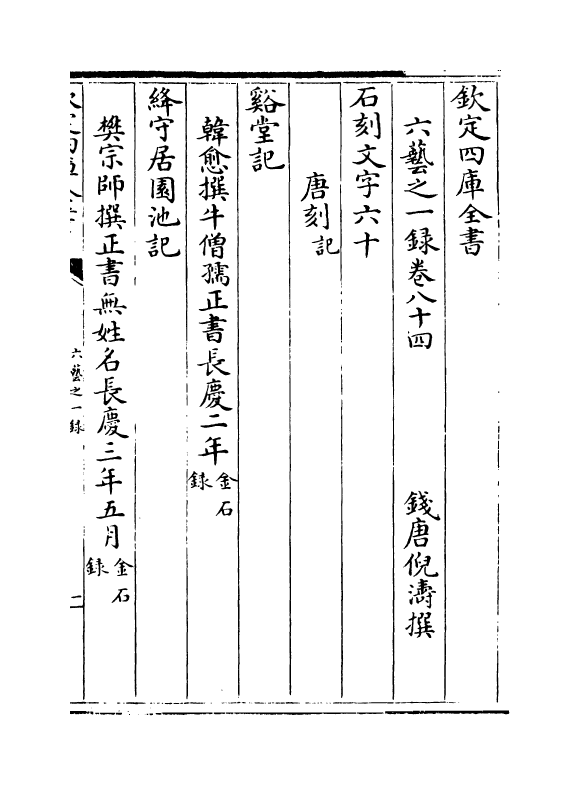 欽定四庫全書
六藝之一録卷八十四 錢唐倪濤撰
石刻文字六十
唐刻記
谿堂記
韓愈撰牛僧孺正書長慶二年金石録
絳守居園池記
樊宗師撰正書無姓名長慶三年五月金石録
六藝之一録